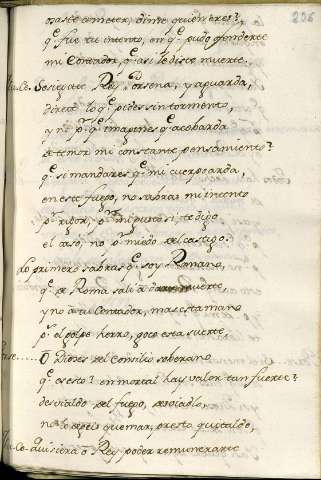 236
osaste cometer, dime quien eres?,
q̃ fue tu intento, en q̃ pudo ofenderte
mi Contador, q̃ asi le diste muerte.
Sosiegate Rey Porsena, y aguarda,
direte lo q̃ pides sin tormento,
y no pr q̃ imagines q̃ acobarda
el temor mi constante pensamiento?
q̃ si mandares q̃ mi cuerpo arda,
en este fuego, no sabras mi intento
pr rigor, pr mi gusto si te digo
el caso, no pr miedo del castigo.
Lo primero sabras q̃ soy Romano,
q̃ de Roma sali a dar muerte,
y no a tu Contador, mas esta mano
pr el golpe herro, goce esta suerte,
O Dioses del Consilio soberano
q̃ es esto? en mortal hay valor tan fuerte?
desvialdo del fuego, desvialdo,
no lo dejeis quemar, presto quitaldo,
Quisiera o Rey poder remunerarte